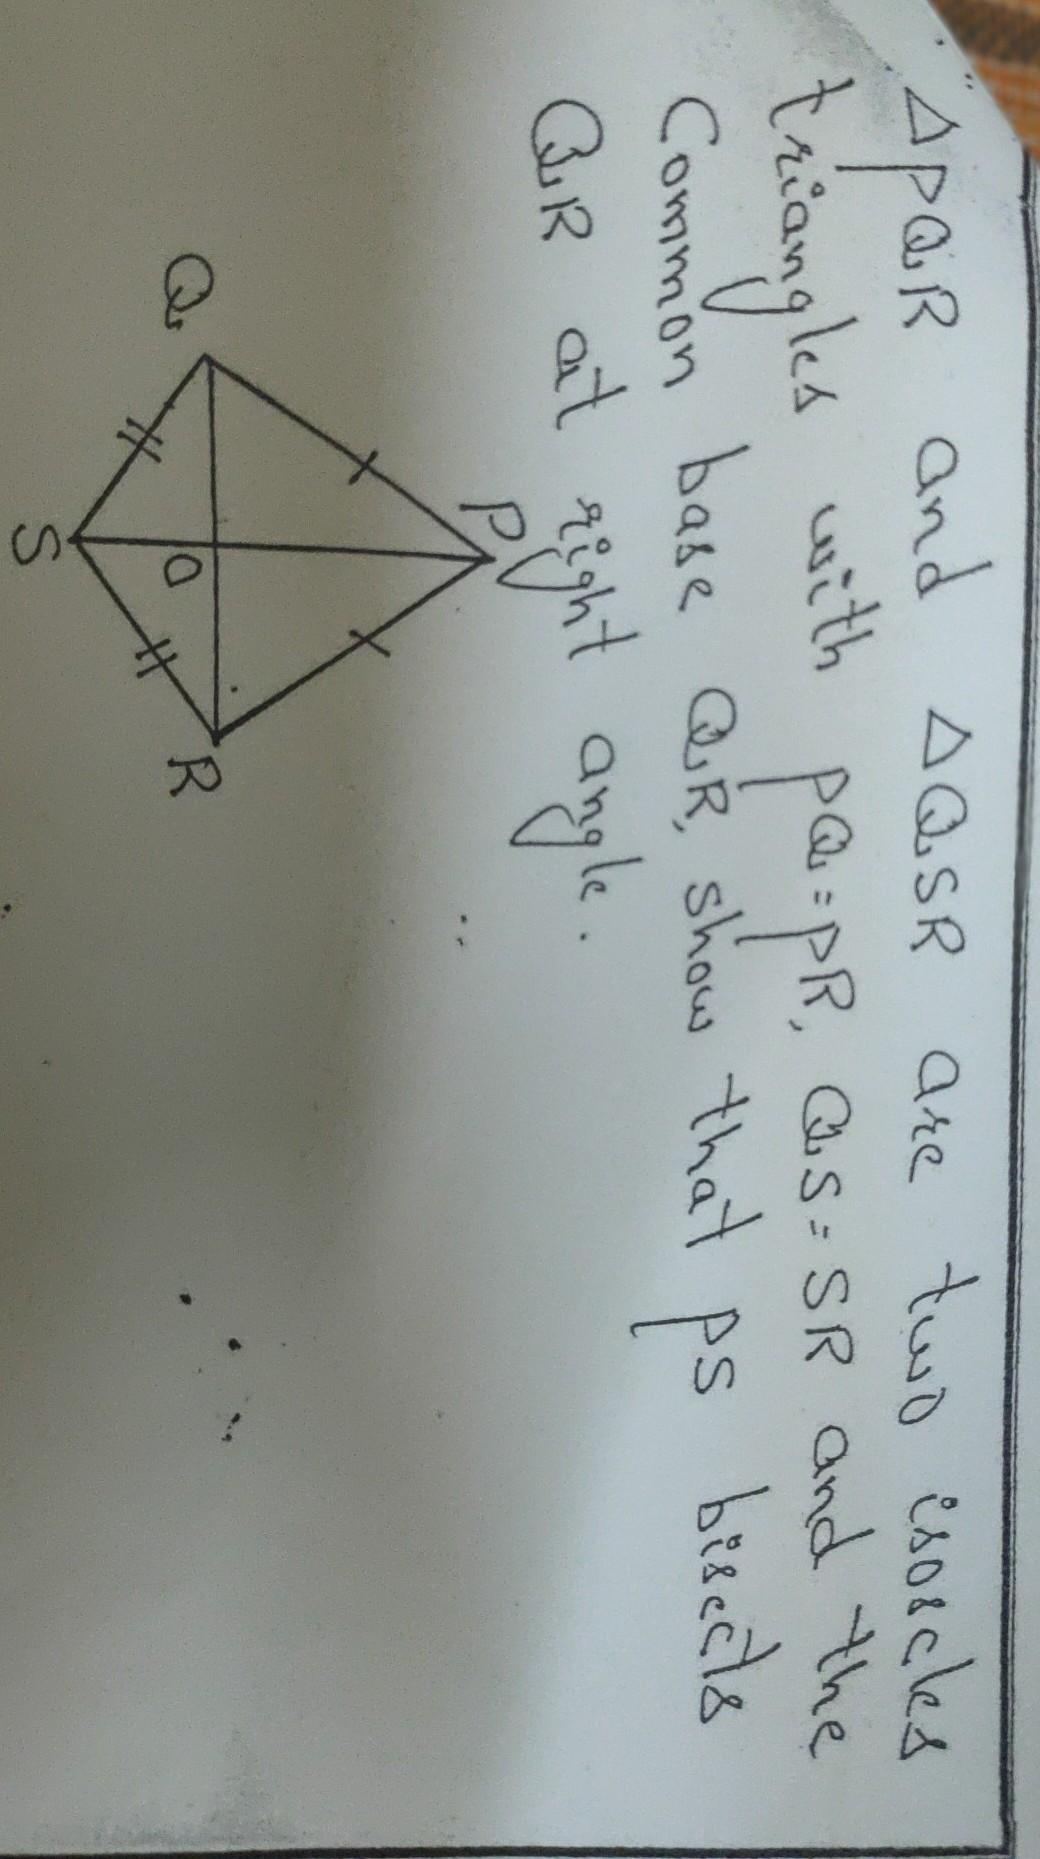 △PQR and △QSR are two isoscles
triangles with PQ=PR, QS=SR and the
Common base QR, show that PS bisects
QR at right angle.
P
Q
O
R
S